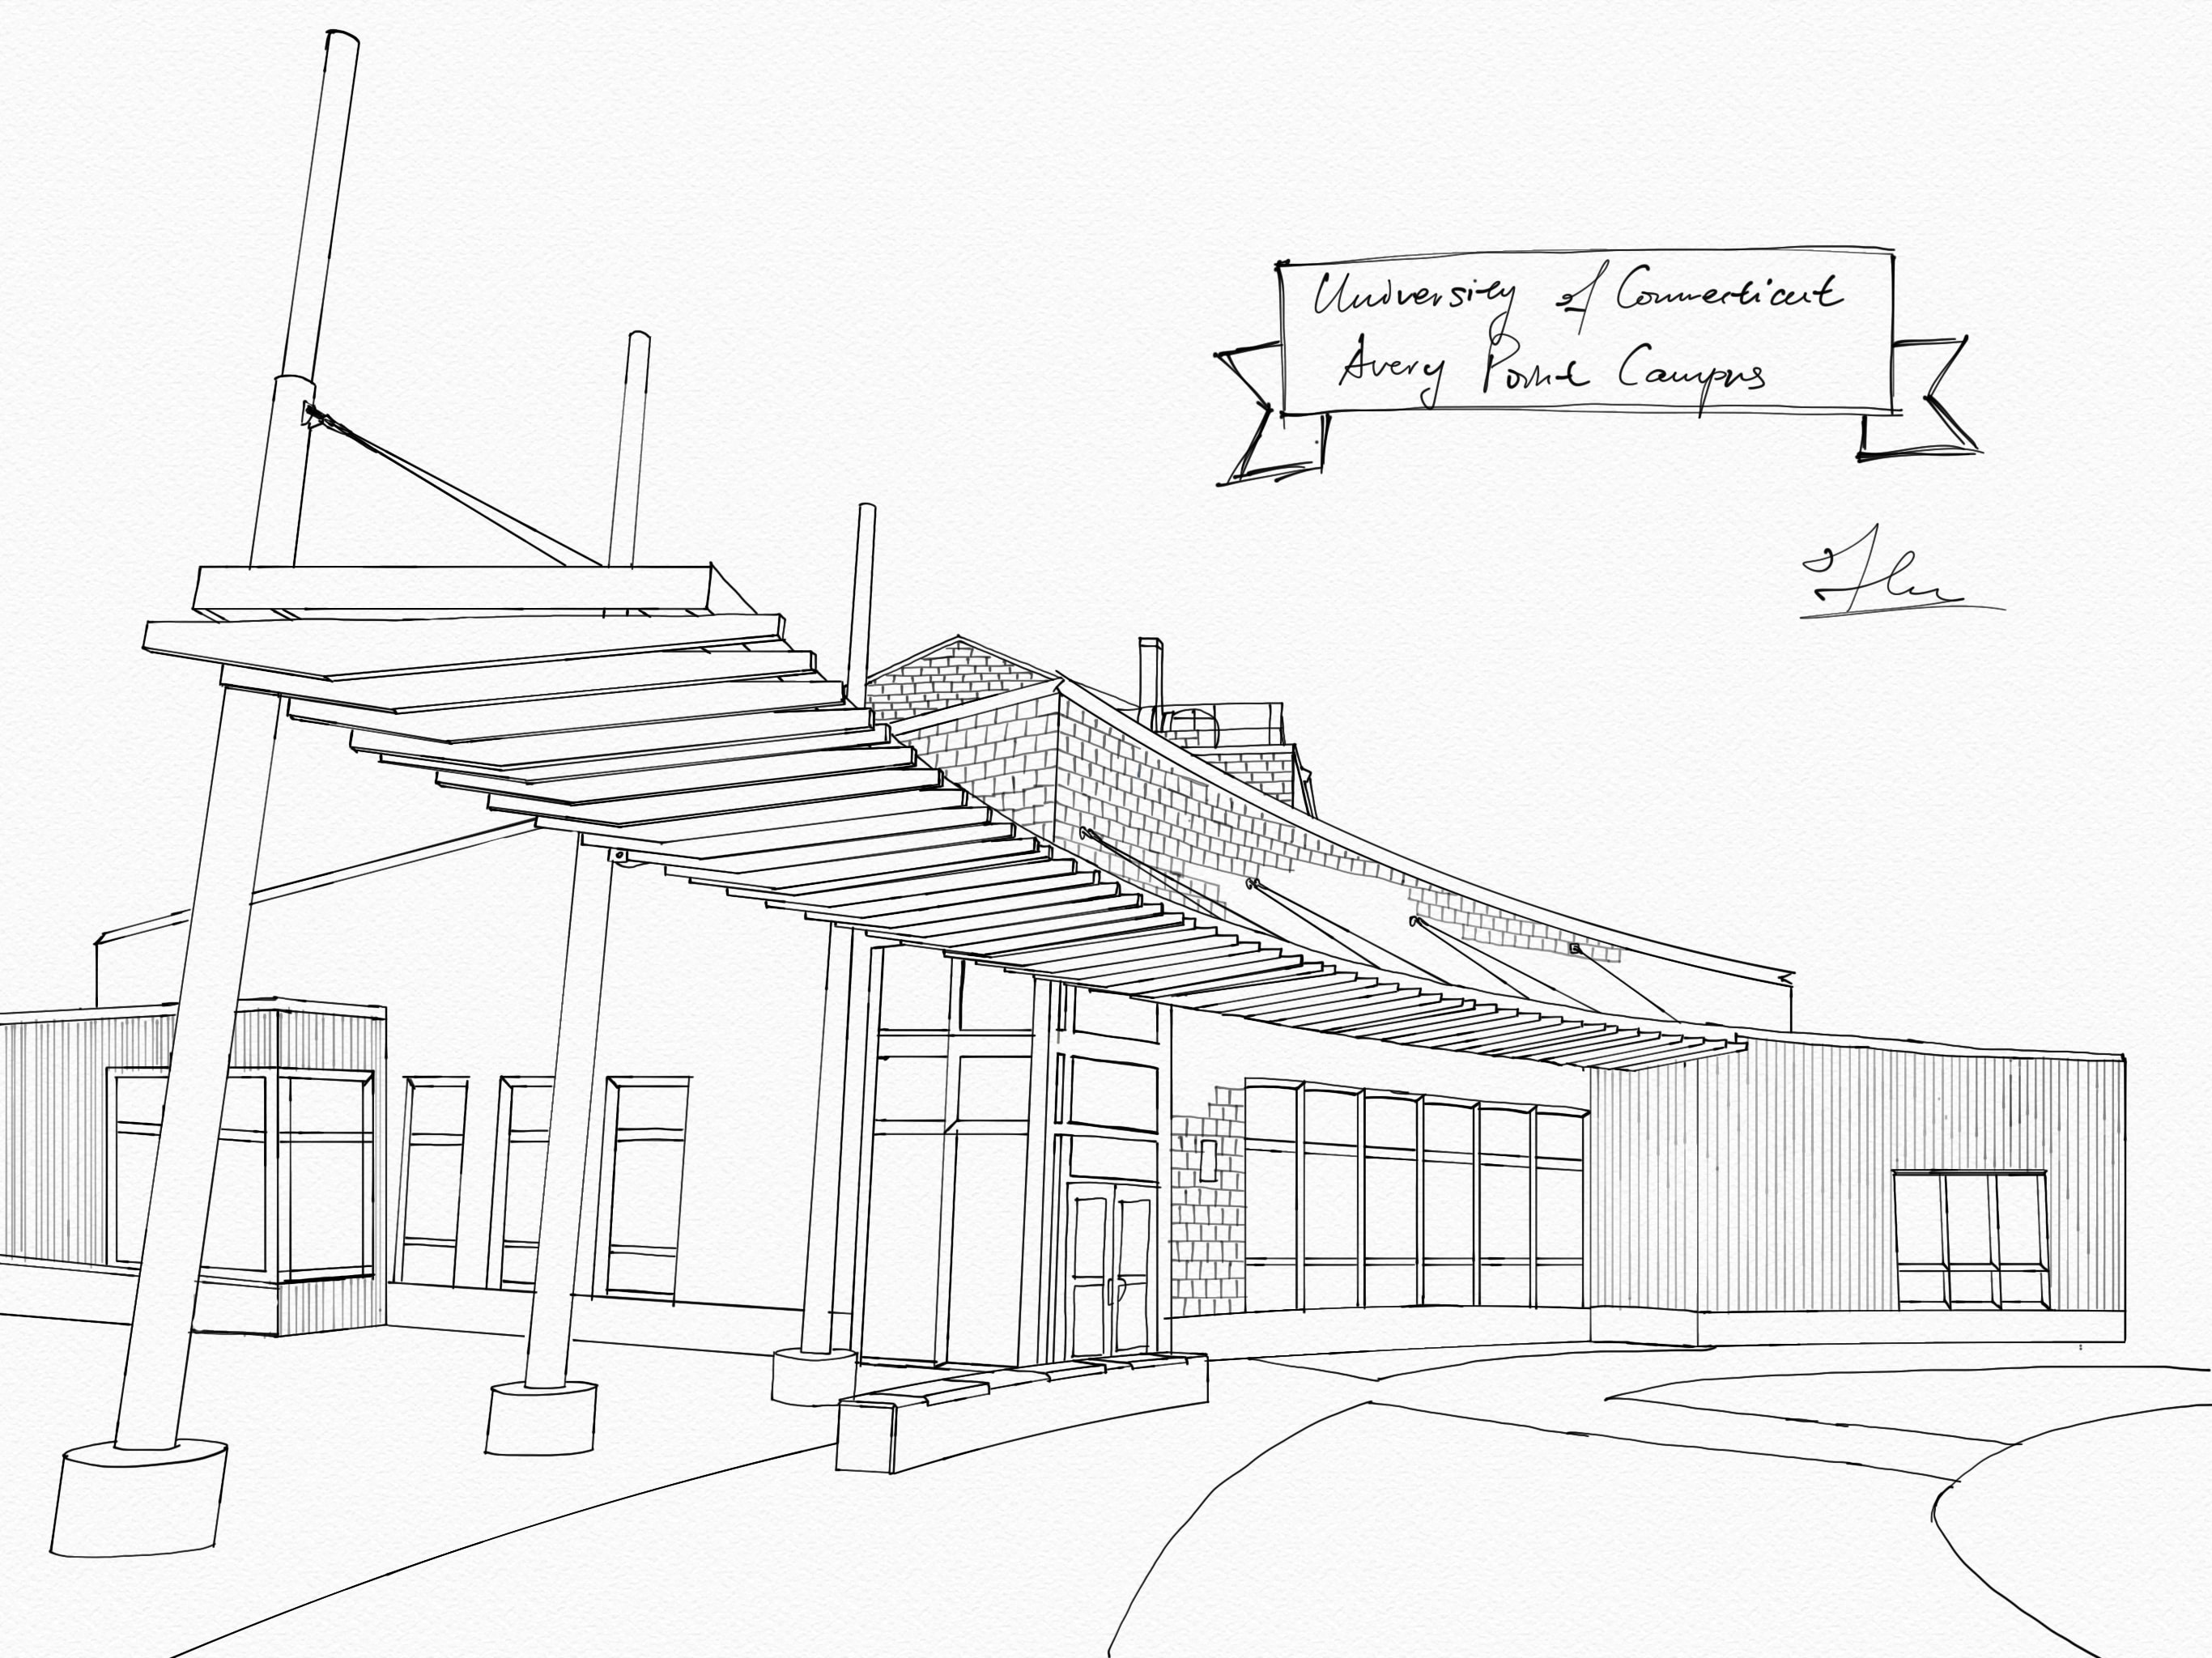 University of Connecticut
Avery Point Campus